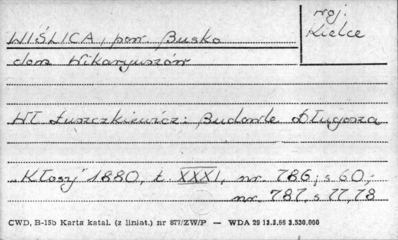 WIŚLICA, pow. Busko
woj.
Kielce
dom Wikaryuszów
Wł. Łuszczkiewicz: Budowle Długosza
"Kłosy" 1880, t. XXXI, nr. 786, s 60,;
nr. 787, s 77, 78
CWD, B-15b Karta katal. (z liniat.) nr 877/ZW/P — WDA 29 12.3.66 3.530.000